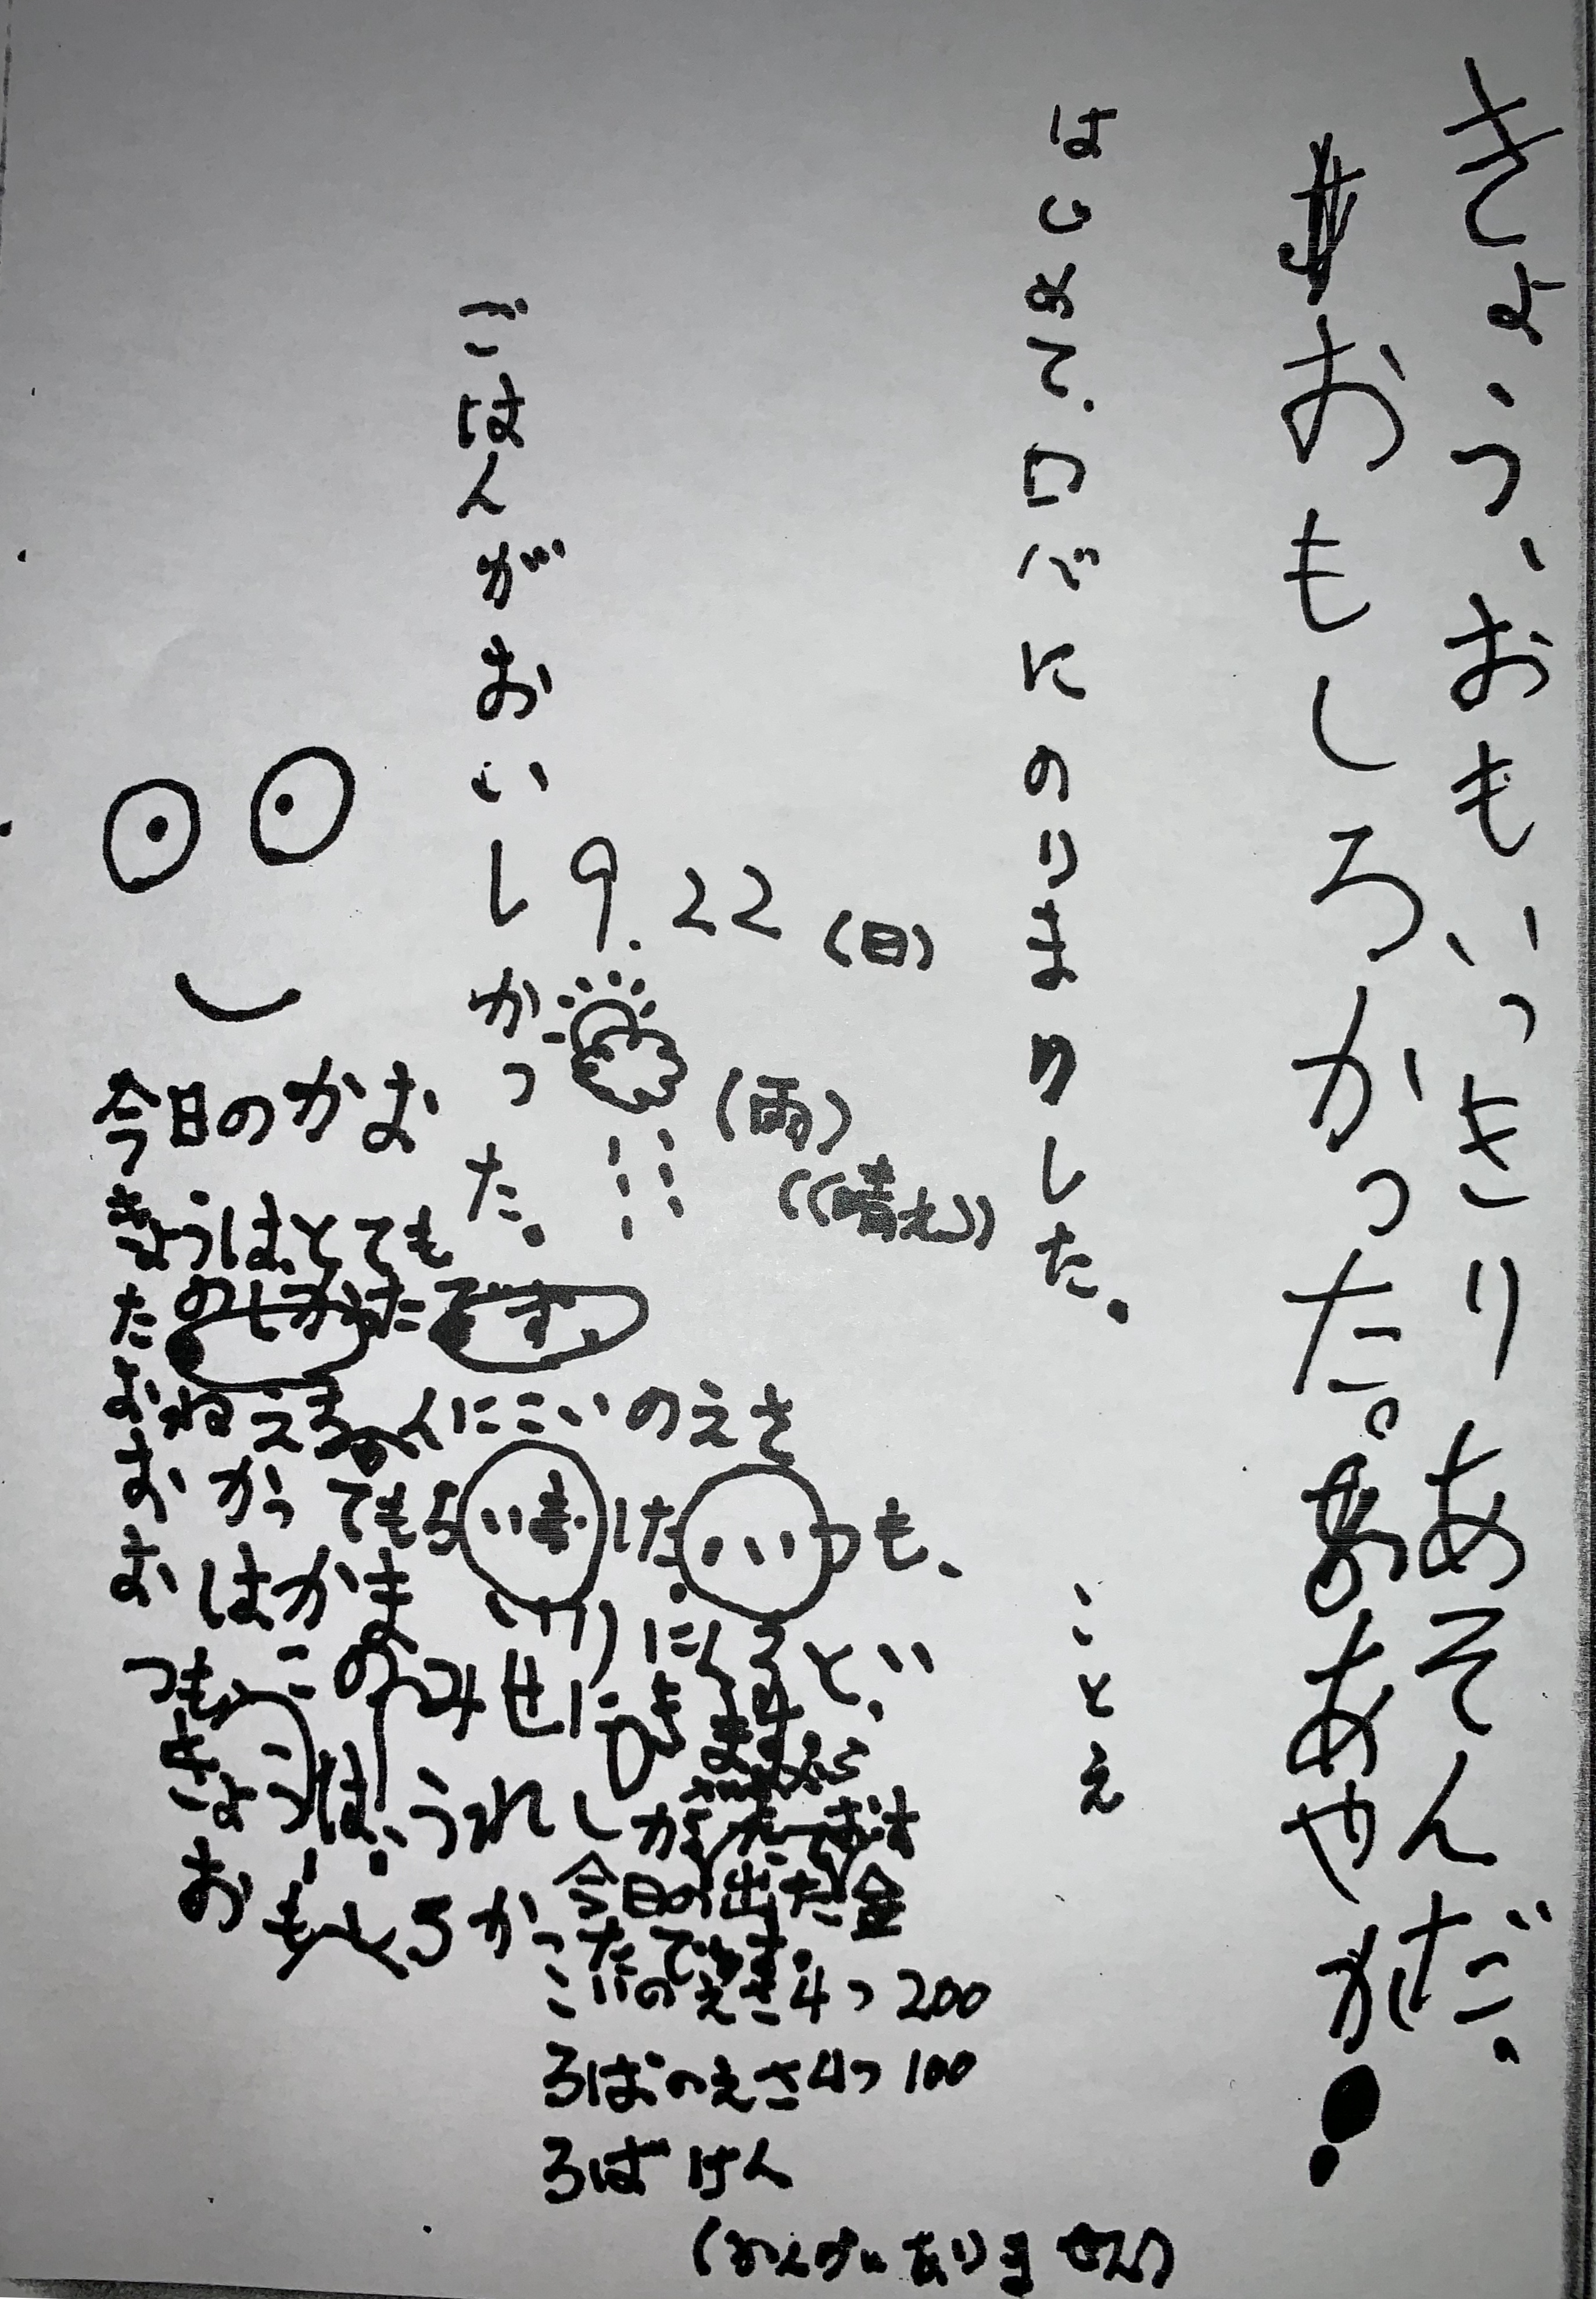 きょう、おもいっきりあそんだ。
おもしろかった。
あやか!
はじめて、ロバにのりました。
ことえ
ごはんがおいしかった。
9.22(日)
(雨)
((晴れ))
今日のかお
きょうはとても
たのしかったです。
おねえちゃんにこいのえさ
おかってもらいました。いつも、
おはかまいりにくると、い
つもこのみせにきます。
きょうは、うれしか
おもしろかったです。
今日の出た金
こいのえさ4つ 200
ろばのえさ4つ 100
ろばけん